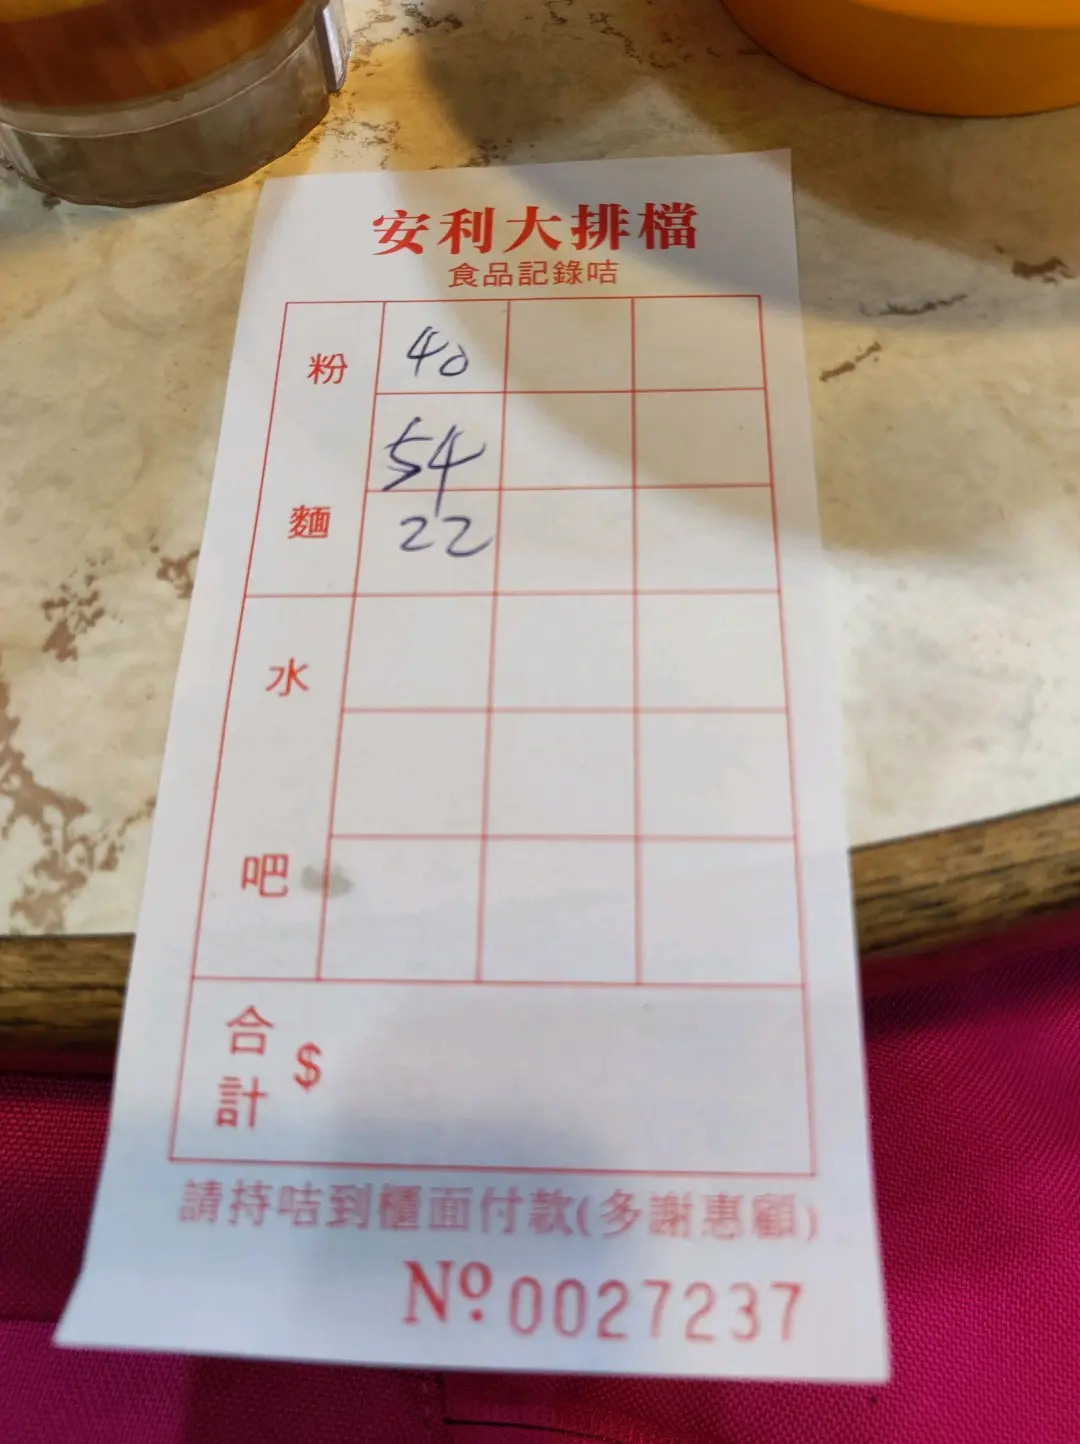 安利大排檔
食品記錄咭
粉 40
54
麵 22
水
吧
合計 $
請持咭到櫃面付款(多謝惠顧)
Nº 0027237